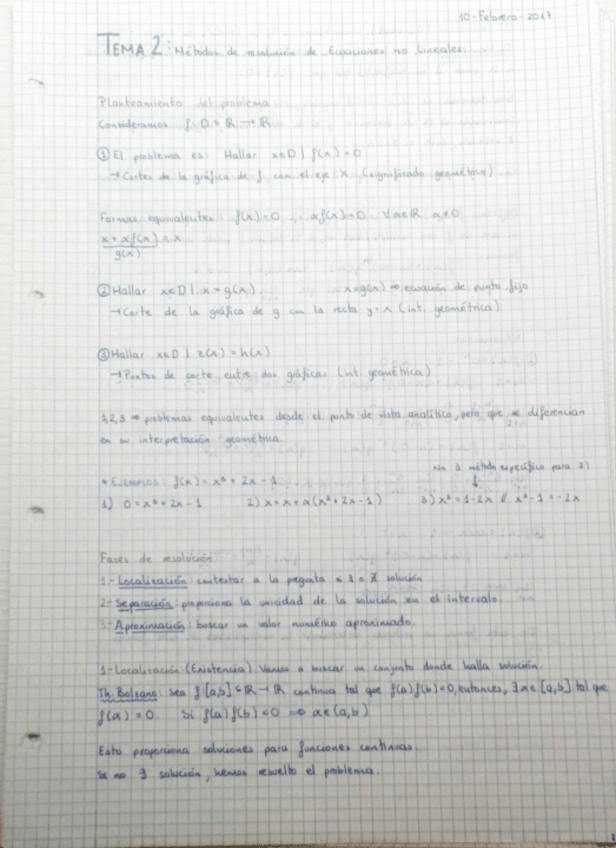 10-Febrero-2017
TEMA 2: Métodos de resolución de Ecuaciones no Lineales.
Planteamiento del problema
Consideramos f: D ⊂ ℝ → ℝ
① El problema es: Hallar x∈D | f(x)=0
→ Cortes de la gráfica de f con el eje X (significado geométrico)
Formas equivalentes: f(x)=0 αf(x)=0 ∀α∈ℝ α≠0
x + αf(x) = x
g(x)
② Hallar x∈D | x=g(x) x=g(x) ⇒ ecuación de punto fijo
→ Corte de la gráfica de g con la recta y=x (int. geométrica)
③ Hallar x∈D | z(x)=h(x)
→ Puntos de corte entre dos gráficas (int. geométrica)
1,2,3 ⇒ problemas equivalentes desde el punto de vista analítico, pero que se diferencian
en su interpretación geométrica.
No ∃ método específico para 3)
* EJEMPLOS: f(x) = x³ + 2x - 1
1) 0 = x³ + 2x - 1 2) x = x + α(x³ + 2x - 1) 3) x³ = 1 - 2x // x³ - 1 = -2x
Fases de resolución
1.- Localización: contestar a la pregunta si ∃ o ∄ solución
2.- Separación: proporciona la unicidad de la solución en el intervalo.
3.- Aproximación: buscar un valor numérico aproximado.
1-Localización (Existencia) Vamos a buscar un conjunto donde halla solución.
Th. Bolzano: sea f: [a,b] ⊂ ℝ → ℝ continua tal que f(a)f(b)≤0, entonces, ∃α∈[a,b] tal que
f(α)=0. Si f(a)f(b)<0 ⇒ α∈(a,b)
Esto proporciona soluciones para funciones continuas.
Si no ∃ solución, hemos resuelto el problema.